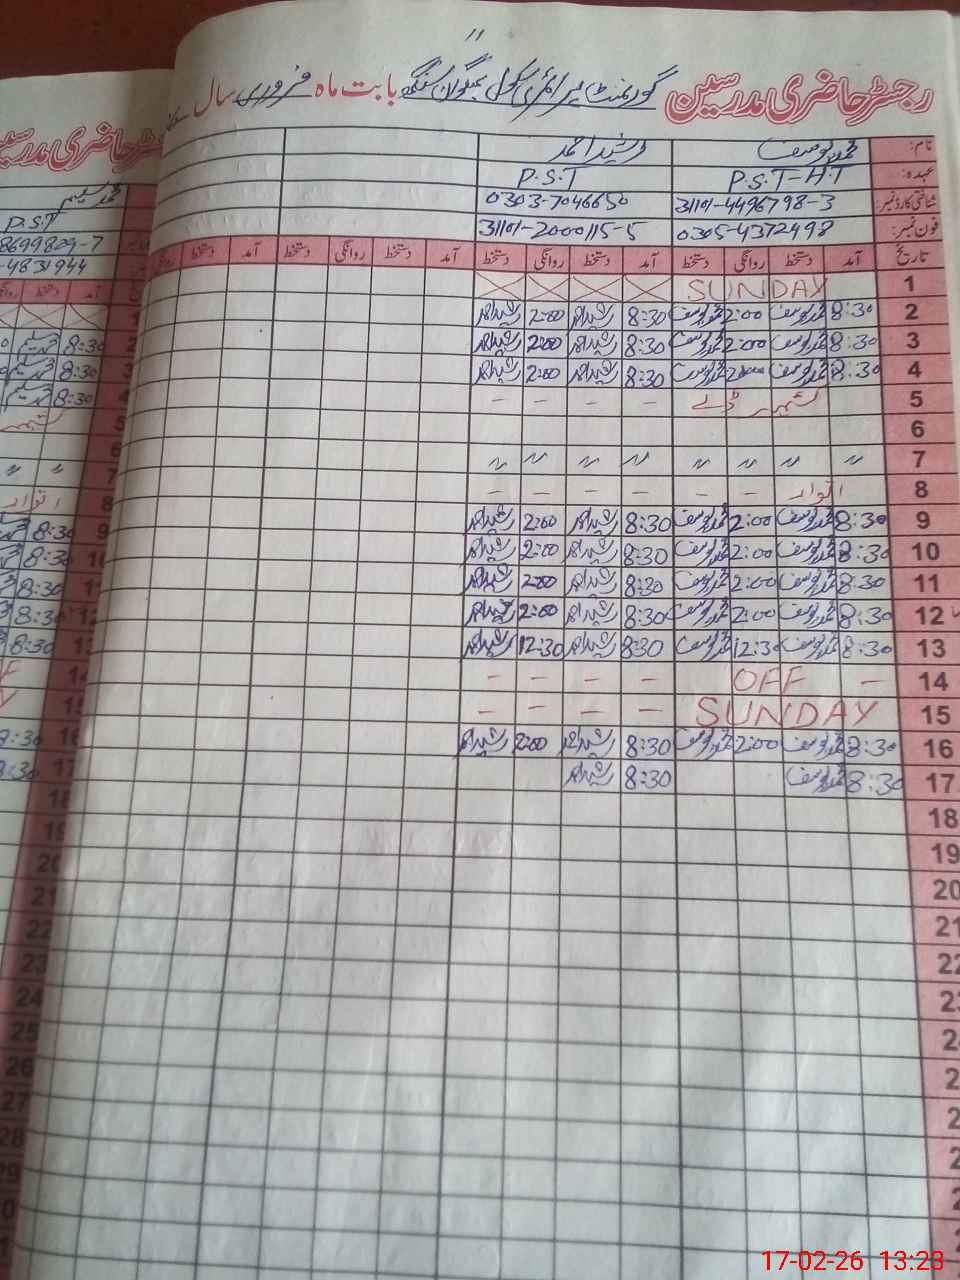 11
رجسٹر حاضری مدرسین گورنمنٹ پرائمری سکول بھگوان سنگھ بابت ماہ فروری سال
نام: محمد یوسف رشید احمد
عہدہ: P.S.T-H.T P.S.T
شناختی کارڈ نمبر: 31101-4496798-3 0303-7046650
فون نمبر: 0305-4372498 31101-2000115-5
تاریخ آمد دستخط روانگی دستخط آمد دستخط روانگی دستخط آمد دستخط روانگی دستخط آمد دستخط روانگی
1 SUNDAY
2 8:30 محمد یوسف 2:00 محمد یوسف 8:30 رشید احمد 2:00 رشید احمد
3 8:30 محمد یوسف 2:00 محمد یوسف 8:30 رشید احمد 2:00 رشید احمد
4 8:30 محمد یوسف 2:00 محمد یوسف 8:30 رشید احمد 2:00 رشید احمد
5 کشمیر ڈے - - - -
6
7 〃 〃 〃 〃 〃 〃 〃 〃
8 اتوار - - - - - -
9 8:30 محمد یوسف 2:00 محمد یوسف 8:30 رشید احمد 2:00 رشید احمد
10 8:30 محمد یوسف 2:00 محمد یوسف 8:30 رشید احمد 2:00 رشید احمد
11 8:30 محمد یوسف 2:00 محمد یوسف 8:30 رشید احمد 2:00 رشید احمد
12 8:30 محمد یوسف 2:00 محمد یوسف 8:30 رشید احمد 2:00 رشید احمد
13 8:30 محمد یوسف 12:30 محمد یوسف 8:30 رشید احمد 12:30 رشید احمد
14 - OFF - - - -
15 SUNDAY - - - -
16 8:30 محمد یوسف 2:00 محمد یوسف 8:30 رشید احمد 2:00 رشید احمد
17 8:30 محمد یوسف 8:30 رشید احمد
18
19
20
21
22
23
24
25
26
27
28
29
حاضری مدرسین
محمد سلیم
P.S.T
8699809-7
-4831944
آمد دستخط
8:30 محمد سلیم
8:30 محمد سلیم
8:30 محمد سلیم
〃 〃
اتوار
8:30
8:30
8:30
8:30
8:30
8:30
8:30
17-02-26 13:23